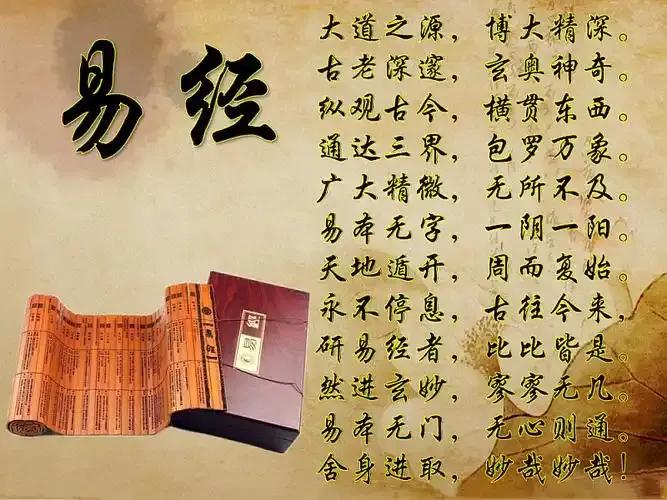 易经
大道之源，博大精深。
古老深邃，玄奥神奇。
纵观古今，横贯东西。
通达三界，包罗万象。
广大精微，无所不及。
易本无字，一阴一阳。
天地遁开，周而复始。
永不停息，古往今来，
研易经者，比比皆是。
然进玄妙，寥寥无几。
易本无门，无心则通。
舍身进取，妙哉妙哉！